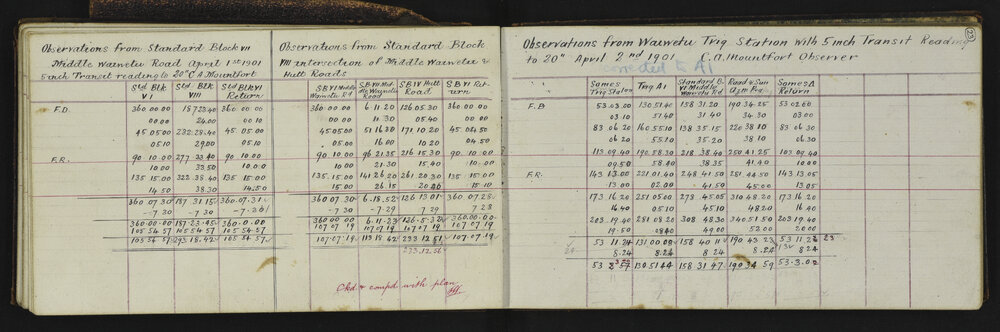 Observations from Standard Block VII
Middle Waiwetu Road April 1st 1901
5 inch Transit reading to 20" C A Mountfort
Std Blk VI | Std Blk VIII | Std Blk VI Return
F.D. 360 00 00 | 187 23 40 | 360 00 00
00.00 | 24.00 | 00 10
45 05 00 | 232.28.40 | 45. 05.00
05.10 | 29.00 | 05.10
F.R. 90 10.00 | 277 33 40 | 90. 10.00
10.00 | 33.50 | 10.00
135. 15.00 | 322.38.40 | 135 15.00
14.50 | 38.30 | 14.50
360 07 30 | 187 31 15 | 360.07.31
-7 30 | -7 30 | -7.30
360 00 00 | 187.23.45 | 360.0.00
105 54 57 | 105 54 57 | 105.54.57
105 54 57 | 293.18.42 | 105 54 57
Observations from Standard Block
VIII intersection of Middle Waiwetu &
Hutt Roads
SB VII Middle Waiwetu Rd | SB VI Middle Waiwetu Road | SB VI Hutt Road | SB VII Return
360 00 00 | 6.11.20 | 126 05.30 | 360 00 00
00 00 | 11 30 | 05 40 | 00 00
45 05 00 | 51 16 30 | 171 10.20 | 45 04 50
05.00 | 16 00 | 10 20 | 04.50
90 10 00 | 96 21.35 | 216 15.30 | 90 10.00
10 00 | 21.30 | 15.40 | 10.00
135.15 00 | 141 26 20 | 261 20.30 | 135 15.00
15 00 | 26.15 | 20 20 | 15.10
360 07 30 | 6.18.52 | 126 13 01 | 360 07.28
-7 30 | -7.29 | 7 29 | 7 28
360 00 00 | 6.11.23 | 126.5.32 | 360.00.00
107 07 19 | 107 07 19 | 107 07 19 | 107 07 19
107.07 19 | 113 18 42 | 233.12 51 | 107.07 19
Ckd & compd with plan
23
Observations from Waiwetu Trig Station with 5 inch Transit Reading
to 20" April 2nd 1901 C.A. Mountfort Observer
Corrected to A1
Somes Δ Trig Station | Trig A1 | Standard B. VI Middle Waiwetu Rd | Road & Sun Azm Peg | Somes Δ Return
F.D. 53.03.00 | 130 51.40 | 158 31.20 | 190 34.25 | 53 02 60
03 10 | 51 40 | 31 40 | 34.30 | 03 00
83 06 20 | 160 55 10 | 138 35.15 | 220 38 10 | 83 06 30
06 20 | 55.10 | 35.20 | 38 10 | 06 30
113.09.40 | 190.58.30 | 218 38.40 | 250 41.25 | 103 09 40
09.50 | 58.40 | 38 35 | 41.40 | 10 00
F.R. 143 13.00 | 221 01.40 | 248 41 50 | 281 44 50 | 143 13.05
13 00 | 02.00 | 41 50 | 45 00 | 13 05
173 16 20 | 251 05 00 | 278 45 05 | 310 48.20 | 173 16 20
16.40 | 05 10 | 45 10 | 48 20 | 16 40
203.19.40 | 281 08.20 | 308 48.30 | 340 51.50 | 203 19.40
19.50 | 08 40 | 49 00 | 52.00 | 20.00
53 11.24 | 131 00 08 | 158 40 11 | 190 43 23 | 53 11 23
8.24 | 8.24 | 8 24 | 8.24 | 8 24
53 2 59 | 130 51 44 | 158 31 47 | 190 34 59 | 53.3.00